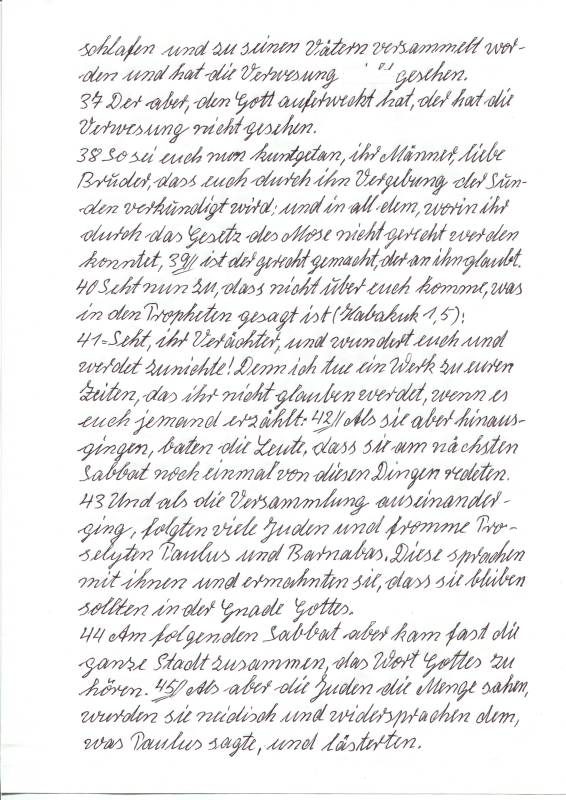 schlafen und zu seinen Vätern versammelt wor-
den und hat die Verwesung gesehen.
37 Der aber, den Gott auferweckt hat, der hat die
Verwesung nicht gesehen.
38 So sei euch nun kuntgetan, ihr Männer, liebe
Brüder, dass euch durch ihn Vergebung der Sün-
den verkündigt wird; und in all dem, worin ihr
durch das Gesetz des Mose nicht gerecht werden
konntet, 39// ist der gerecht gemacht, der an ihn glaubt.
40 Seht nun zu, dass nicht über euch komme, was
in den Propheten gesagt ist (Habakuk 1,5):
41 =Seht, ihr Verächter, und wundert euch und
werdet zunichte! Denn ich tue ein Werk zu euren
Zeiten, das ihr nicht glauben werdet, wenn es
euch jemand erzählt.= 42// Als sie aber hinaus-
gingen, baten die Leute, dass sie am nächsten
Sabbat noch einmal von diesen Dingen redeten.
43 Und als die Versammlung auseinander-
ging, folgten viele Juden und fromme Pro-
selyten Paulus und Barnabas. Diese sprachen
mit ihnen und ermahnten sie, dass sie bleiben
sollten in der Gnade Gottes.
44 Am folgenden Sabbat aber kam fast die
ganze Stadt zusammen, das Wort Gottes zu
hören. 45// Als aber die Juden die Menge sahen,
wurden sie neidisch und widersprachen dem,
was Paulus sagte, und lästerten.